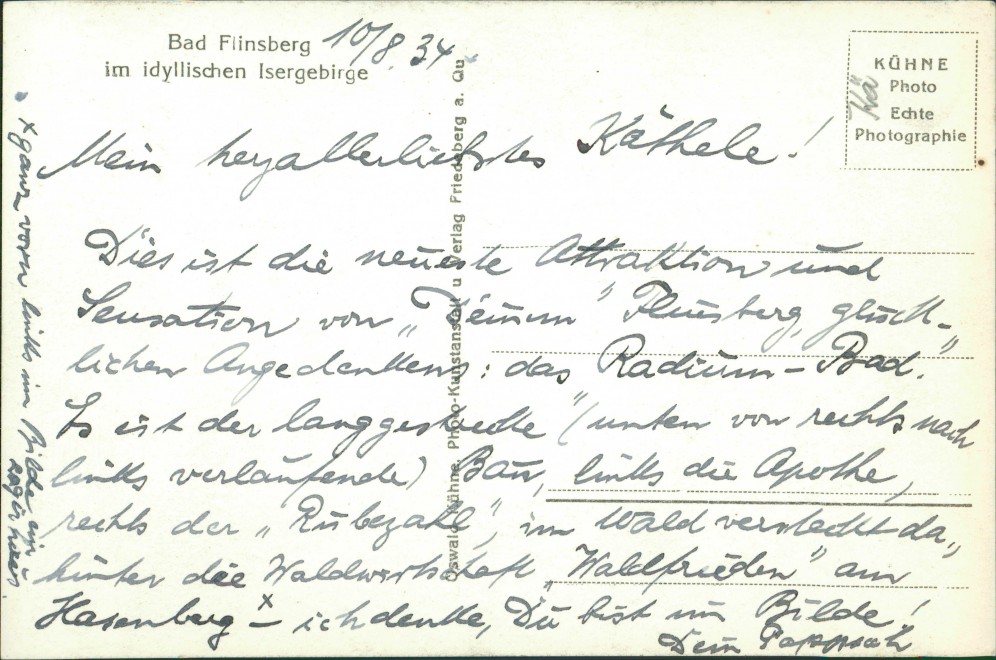 Bad Flinsberg
im idyllischen Isergebirge
10/8.34
KÜHNE
Photo
Echte
Photographie
Kä
Mein herzallerliebstes Käthele!
Dies ist die neueste Attraktion und
Sensation von „Deinem" Flinsberg, glück-
lichen Angedenkens: das „Radium-Bad."
Es ist der langgestreckte (unten von rechts nach
links verlaufende) Bau, links die Apotheke,
rechts der „Rübezahl", im Wald versteckt da-
hinter die Waldwirtschaft „Waldfrieden" am
Hasenberg x – ich denke, Du bist im Bilde!
Dein
x ganz vorn links im Bilde ein
Logierhaus
Oswald Kühne, Photo-Kunstanstalt u. Verlag Friedeberg a. Qu